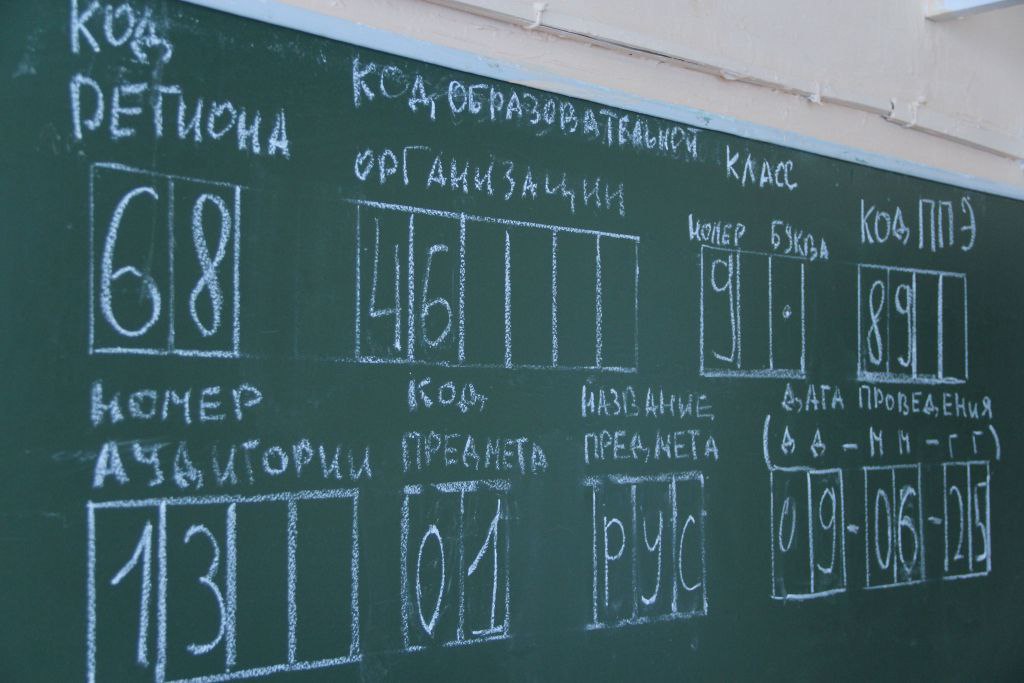 КОД
РЕГИОНА
68
КОД ОБРАЗОВАТЕЛЬНОЙ
ОРГАНИЗАЦИИ
46
КЛАСС
НОМЕР БУКВА
9 .
КОД ППЭ
89
НОМЕР
АУДИТОРИИ
13
КОД
ПРЕДМЕТА
01
НАЗВАНИЕ
ПРЕДМЕТА
РУС
ДАТА ПРОВЕДЕНИЯ
(ДД-ММ-ГГ)
09-06-25